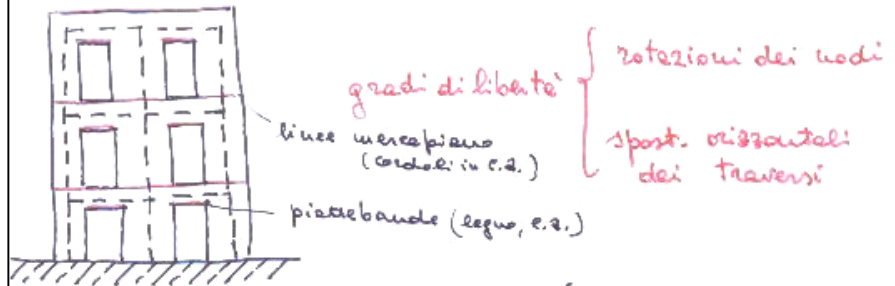 gradi di libertà
rotazioni dei nodi
spost. orizzontali
dei traversi
linee marcapiano
(cordoli in c.a.)
piattebande (legno, c.a.)